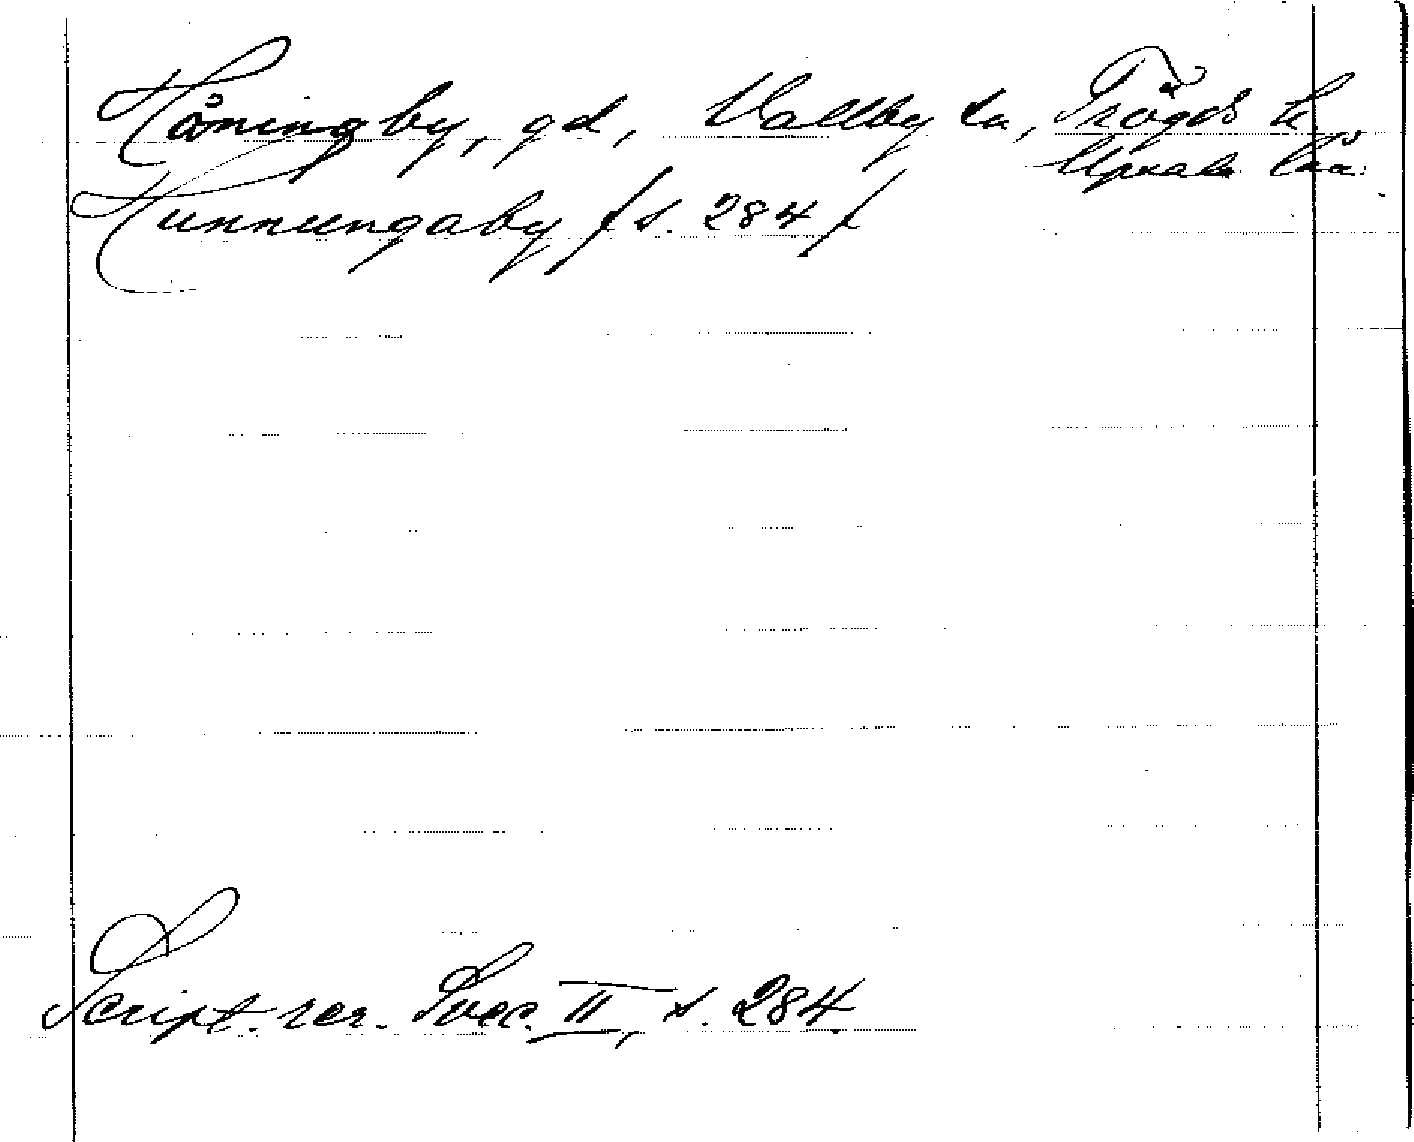 Håningby, gd, Vallby sn, Trögds h,
Upsala län.
Hunnungaby / s. 284 /
Script. rer. Svec. II, s. 284.